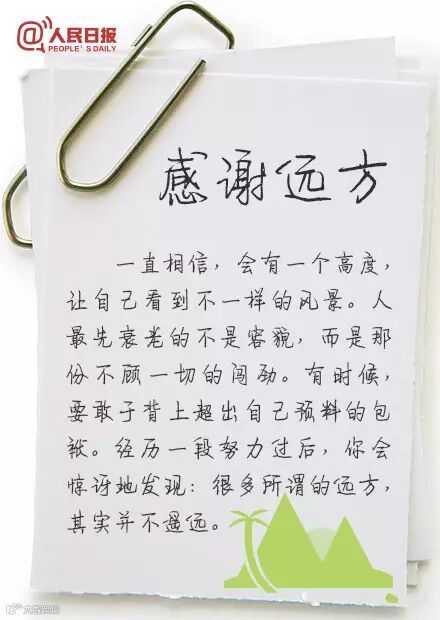 @人民日报
PEOPLE'S DAILY
感谢远方
一直相信，会有一个高度，
让自己看到不一样的风景。人
最先衰老的不是容貌，而是那
份不顾一切的闯劲。有时候，
要敢于背上超出自己预料的包
袱。经历一段努力过后，你会
惊讶地发现：很多所谓的远方，
其实并不遥远。